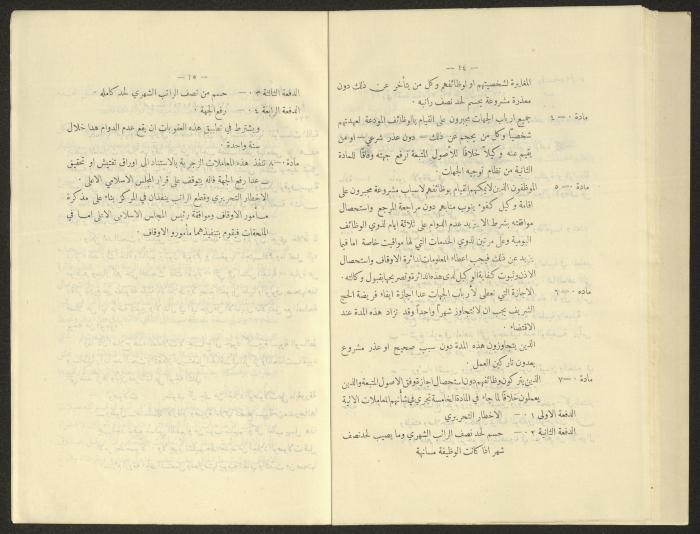 — ٢٤ —
المغايرة لشخصيتهم او لوظائفهم وكل من يتأخر عن ذلك دون
معذرة مشروعة يحسم لحد نصف راتبه .
مادة ٤ — جميع ارباب الجهات مجبرون على القيام بالوظائف المودعة لعهدتهم
شخصياً وكل من يحجم عن ذلك — دون عذر شرعي — او من
يقيم عنه وكيلاً خلافاً للأصول المتبعة ترفع جهته وفاقاً للمادة
الثانية من نظام توجيه الجهات .
مادة ٥ — الموظفون الذين لا يمكنهم القيام بوظائفهم لاسباب مشروعة مجبرون على
اقامة وكيل كفوء ينوب منابهم دون مراجعة المرجع واستحصال
موافقته بشرط الا يزيد عدم الدوام على ثلاثة ايام لذوي الوظائف
اليومية وعلى مرتين لذوي الخدمات التي لها مواقيت خاصة اما فيما
يزيد عن ذلك فيجب اعطاء المعلومات لدائرة الاوقاف واستحصال
الاذن وثبوت كفاية الوكيل لدى هذه الدائرة وتصريحها بقبول وكالته .
ماده ٦ — الاجازة التي تعطى لأرباب الجهات عدا اجازة ايفاء فريضة الحج
الشريف يجب ان لا تتجاوز شهراً واحداً وقد تزاد هذه المدة عند
الاقتضاء .
الذين يتجاوزون هذه المدة دون سبب صحيح او عذر مشروع
يعدون تاركين العمل .
مادة ٧ — الذين يتركون وظائفهم دون استحصال اجازة وفق الاصول المتبعة والذين
يعملون خلافاً لما جاء في المادة الخامسة تجري في شأنهم المعاملات الاتية
الدفعة الاولى ١ — الاخطار التحريري
الدفعة الثانية ٢ — حسم لحد نصف الراتب الشهري وما يصيب لحد نصف
شهر اذا كانت الوظيفة مسانهة
— ٢٥ —
الدفعة الثالثة ٣ — حسم من نصف الراتب الشهري لحد كامله .
الدفعة الرابعة ٤ — رفع الجهة .
ويشترط في تطبيق هذه العقوبات ان يقع عدم الدوام هذا خلال
سنة واحدة .
مادة ٨ — تنفذ هذه المعاملات الزجرية بالاستناد الى اوراق تفتيش او تحقيق
— عدا رفع الجهة فانه يتوقف على قرار المجلس الاسلامي الاعلى .
الاخطار التحريري وقطع الراتب ينفذان في المركز بناء على مذكرة
مأمور الاوقاف وموافقة رئيس المجلس الاسلامي الاعلى اما في
الملحقات فيقوم بتنفيذهما مأمورو الاوقاف .